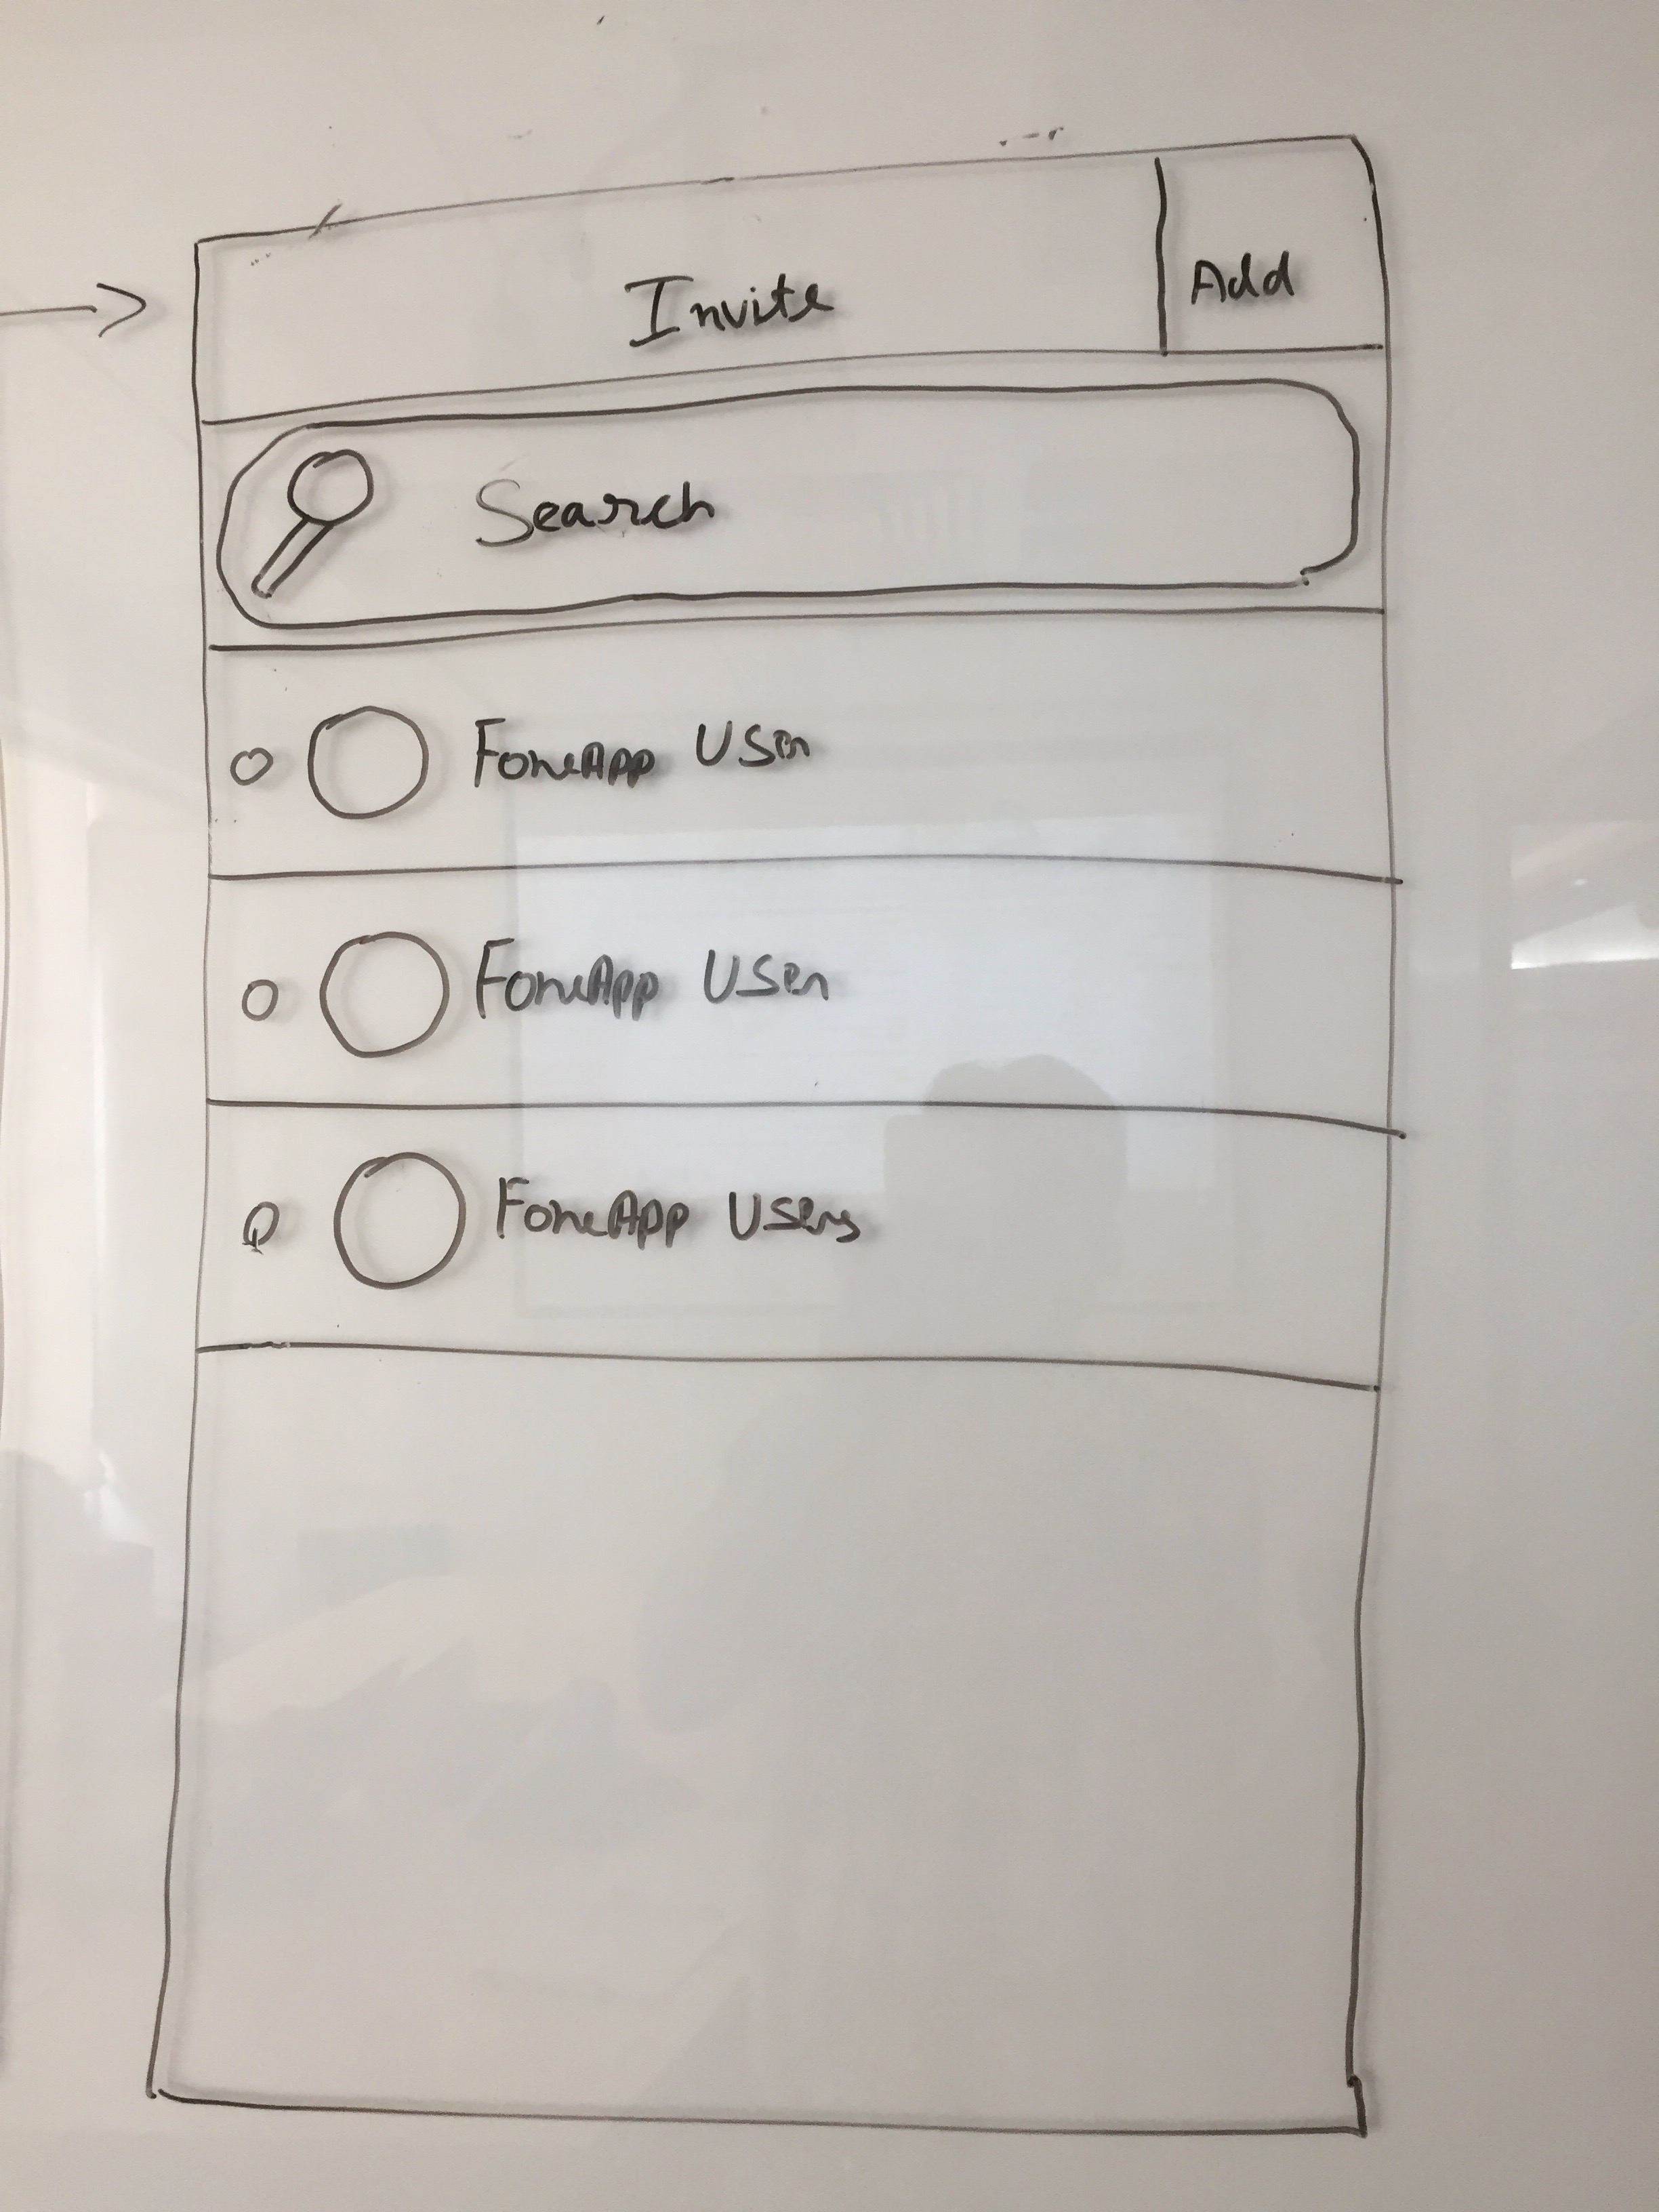 Invite
Add
Search
FoneApp User
FoneApp User
FoneApp Users